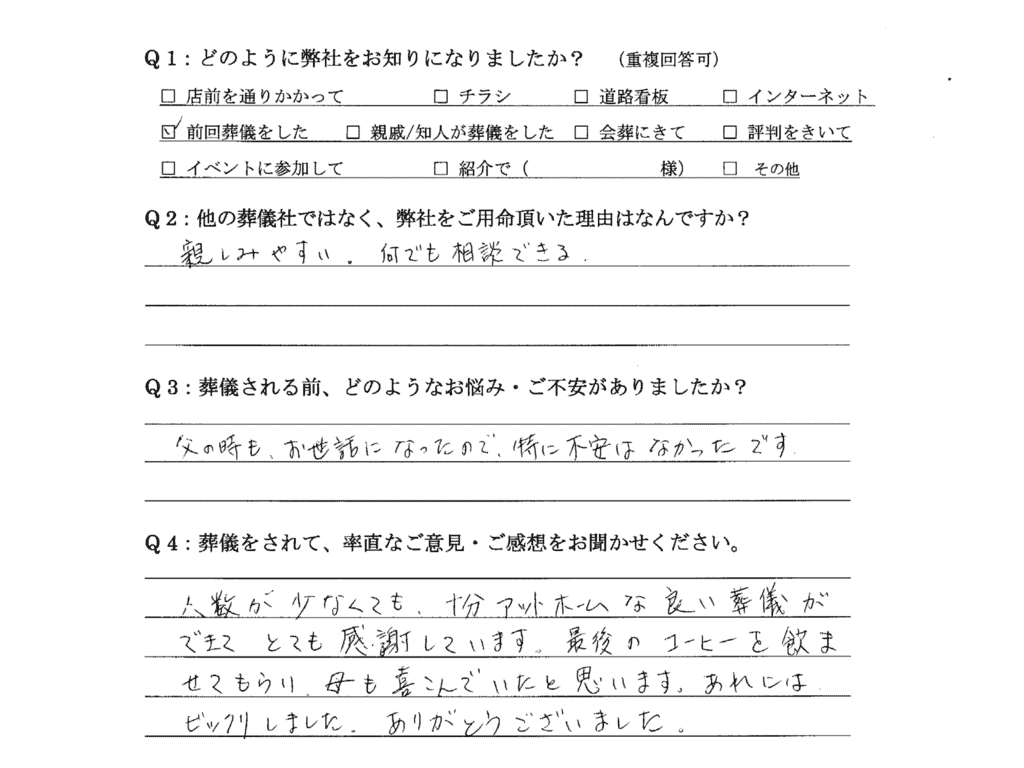 Q1：どのように弊社をお知りになりましたか？　（重複回答可）
□ 店前を通りかかって　□ チラシ　□ 道路看板　□ インターネット
☑ 前回葬儀をした　□ 親戚/知人が葬儀をした　□ 会葬にきて　□ 評判をきいて
□ イベントに参加して　□ 紹介で（　　　　　　　様）　□ その他
Q2：他の葬儀社ではなく、弊社をご用命頂いた理由はなんですか？
親しみやすい。何でも相談できる.
Q3：葬儀される前、どのようなお悩み・ご不安がありましたか？
父の時も、お世話になったので、特に不安はなかったです.
Q4：葬儀をされて、率直なご意見・ご感想をお聞かせください。
人数が少なくても、十分アットホームな良い葬儀が
できて とても感謝しています。最後のコーヒーを飲ま
せてもらい、母も喜こんでいたと思います。あれには
ビックリしました。ありがとうございました。